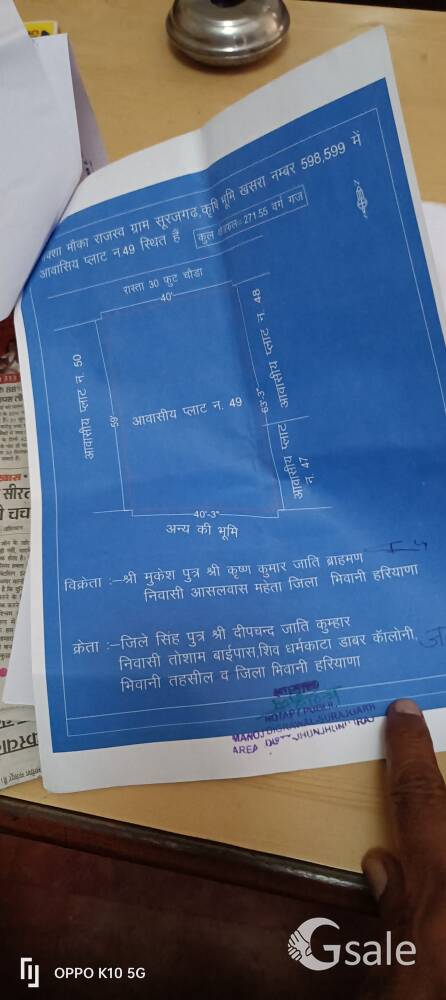 नक्शा मौका राजस्व ग्राम सूरजगढ़, कृषि भूमि खसरा नम्बर 598,599 में
आवासिय प्लाट न.49 स्थित है
कुल क्षेत्रफल:-271.55 वर्ग गज
रास्ता 30 फुट चौडा
40'
आवासीय प्लाट न. 50
59'
आवासीय प्लाट न. 49
63'-3"
आवासीय प्लाट न. 48
आवासीय प्लाट
न. 47
40'-3"
अन्य की भूमि
विक्रेता :–श्री मुकेश पुत्र श्री कृष्ण कुमार जाति ब्राहमण
निवासी आसलवास महेता जिला भिवानी हरियाणा
क्रेता :–जिले सिंह पुत्र श्री दीपचन्द जाति कुम्हार
निवासी तोशाम बाईपास,शिव धर्मकाटा डाबर कॅालोनी,
भिवानी तहसील व जिला भिवानी हरियाणा
NOTARY PUBLIC
AREA
Gsale
OPPO K10 5G